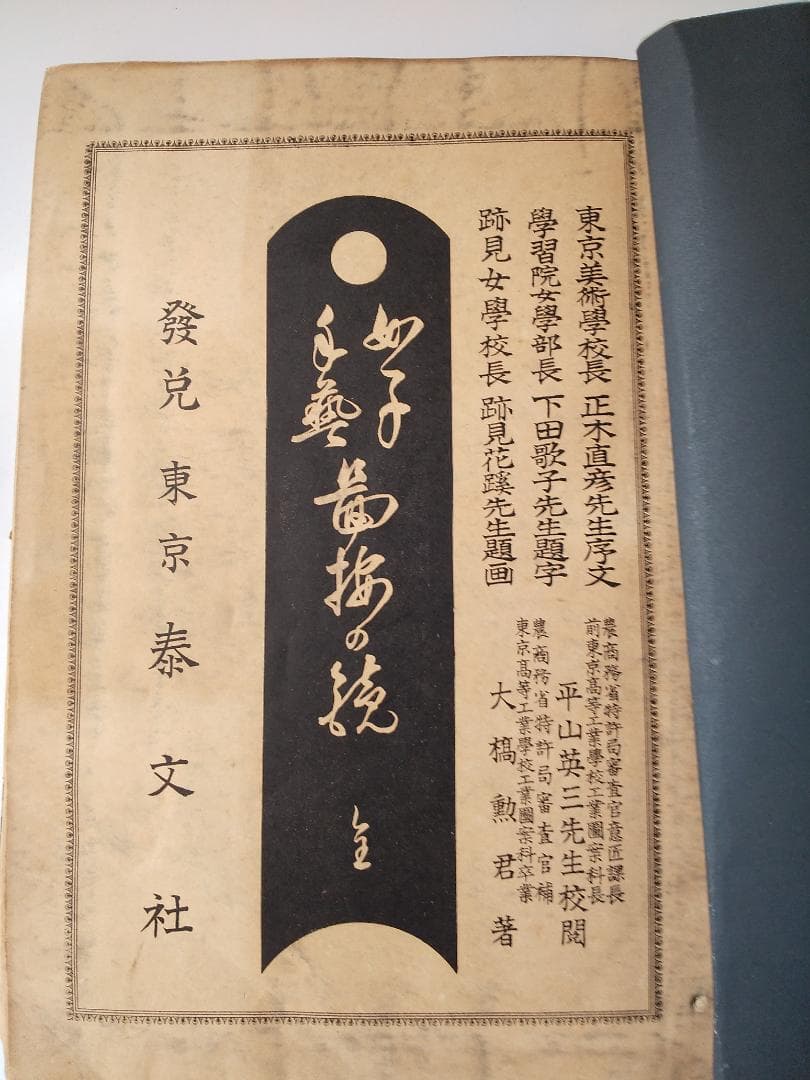 東京美術學校長 正木直彦先生序文
學習院女學部長 下田歌子先生題字
跡見女學校長 跡見花蹊先生題画
農商務省特許局審査官意匠課長
前東京高等工業學校工業圖案科長
平山英三先生校閲
農商務省特許局審査官補
東京高等工業學校工業圖案科卒業
大橋勲君著
女子
手藝
圖按の鏡 全
發兌 東京 泰文社